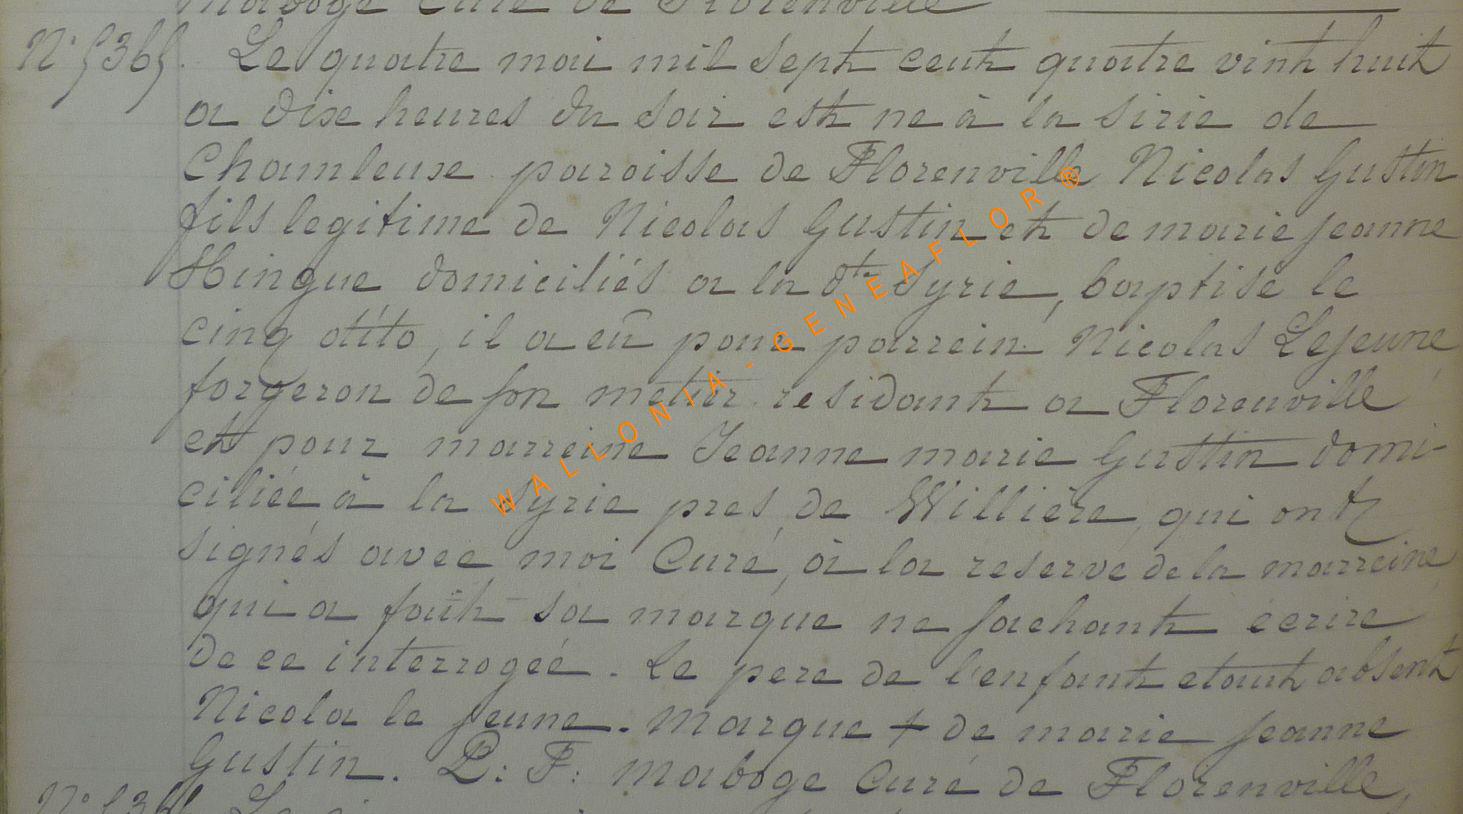 maboge Curé de Florenville
N° 5365. Le quatre mai mil sept cent quatre vint huit
a dixe heures du soir est ne à la sirie de
Chamleuse paroisse de Florenville Nicolas Gustin
fils legitime de Nicolas Gustin et de marie jeanne
Hinque domiciliés a la dte Syrie, baptisé le
cinq ditto, il a eû pour parrein Nicolas Lejeune
forgeron de son metier residant a Florenville
et pour marreine Jeanne marie Gustin domi-
ciliée à la Syrie pres de Willière qui ont
signés avec moi Curé, à la reserve de la marreine
qui a fait sa marque ne sachant ecrire
de ce interrogée. Le pere de l'enfant etant absent
Nicola le jeune. Marque + de marie jeanne
Gustin. P: F: maboge Curé de Florenville,
WALLONIA - GENEAFLOR ®